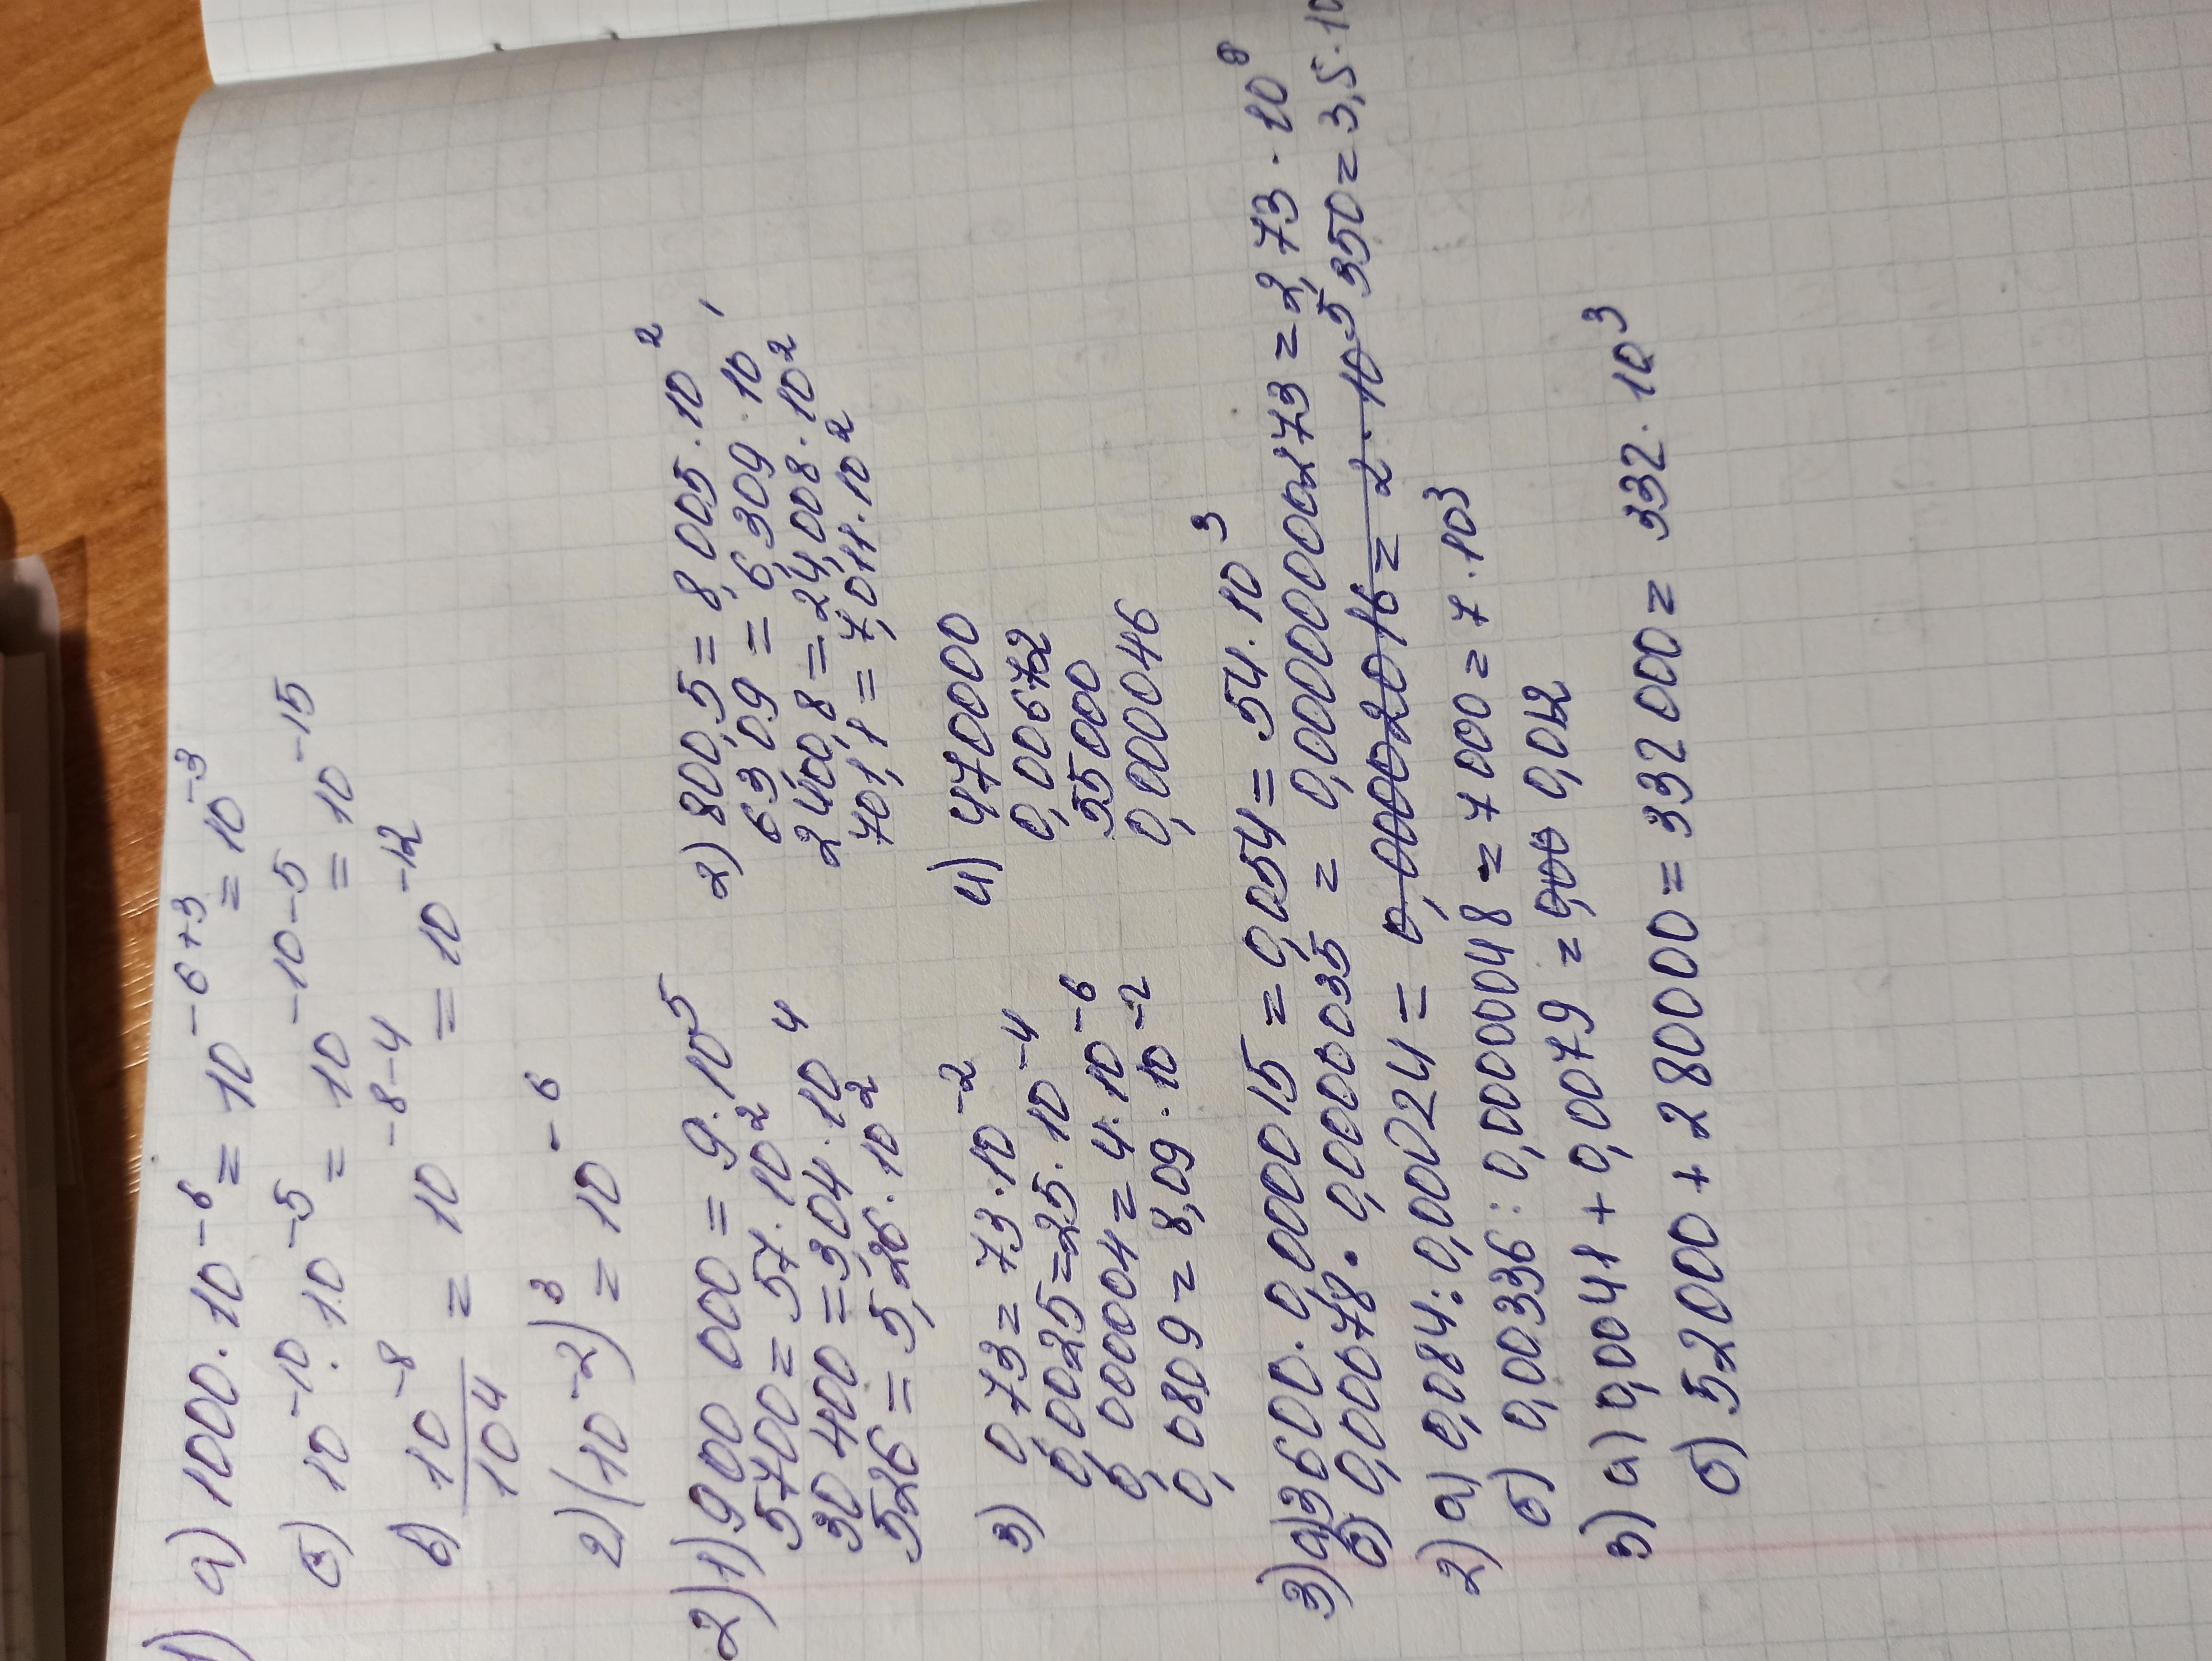 1) а) 1000·10⁻⁶ = 10⁻⁶⁺³ = 10⁻³
б) 10⁻¹⁰·10⁻⁵ = 10⁻¹⁰⁻⁵ = 10⁻¹⁵
в) 10⁻⁸/10⁴ = 10⁻⁸⁻⁴ = 10⁻¹²
г) (10⁻²)³ = 10⁻⁶
2) 1) 900 000 = 9·10⁵
5700 = 57·10²
30 400 = 3,04·10⁴
526 = 5,26·10²
2) 800,5 = 8,005·10²
63,09 = 6,309·10¹
2400,8 = 24,008·10²
70,1,1 = 7,011·10²
3) 0,73 = 73·10⁻²
0,0025 = 25·10⁻⁴
0,000004 = 4·10⁻⁶
0,0809 = 8,09·10⁻²
4) 470000
0,00672
55000
0,0000046
3) а) 3600·0,000015 = 0,054 = 54·10³
б) 0,00078·0,00000035 = 0,000000000273 = 2,73·10⁸
2) а) 0,084:0,00024 = 0,00002016 = 2·10⁵ 350 = 3,5·10
б) 0,00336:0,00000048 = 7000 = 7·10³
3) а) 0,0041 + 0,0079 = 0,00 0,012
б) 52000 + 280000 = 332 000 = 332·10³